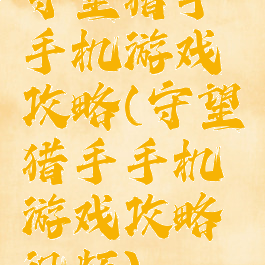 守望猎手
手机游戏
攻略(守望
猎手手机
游戏攻略
视频)